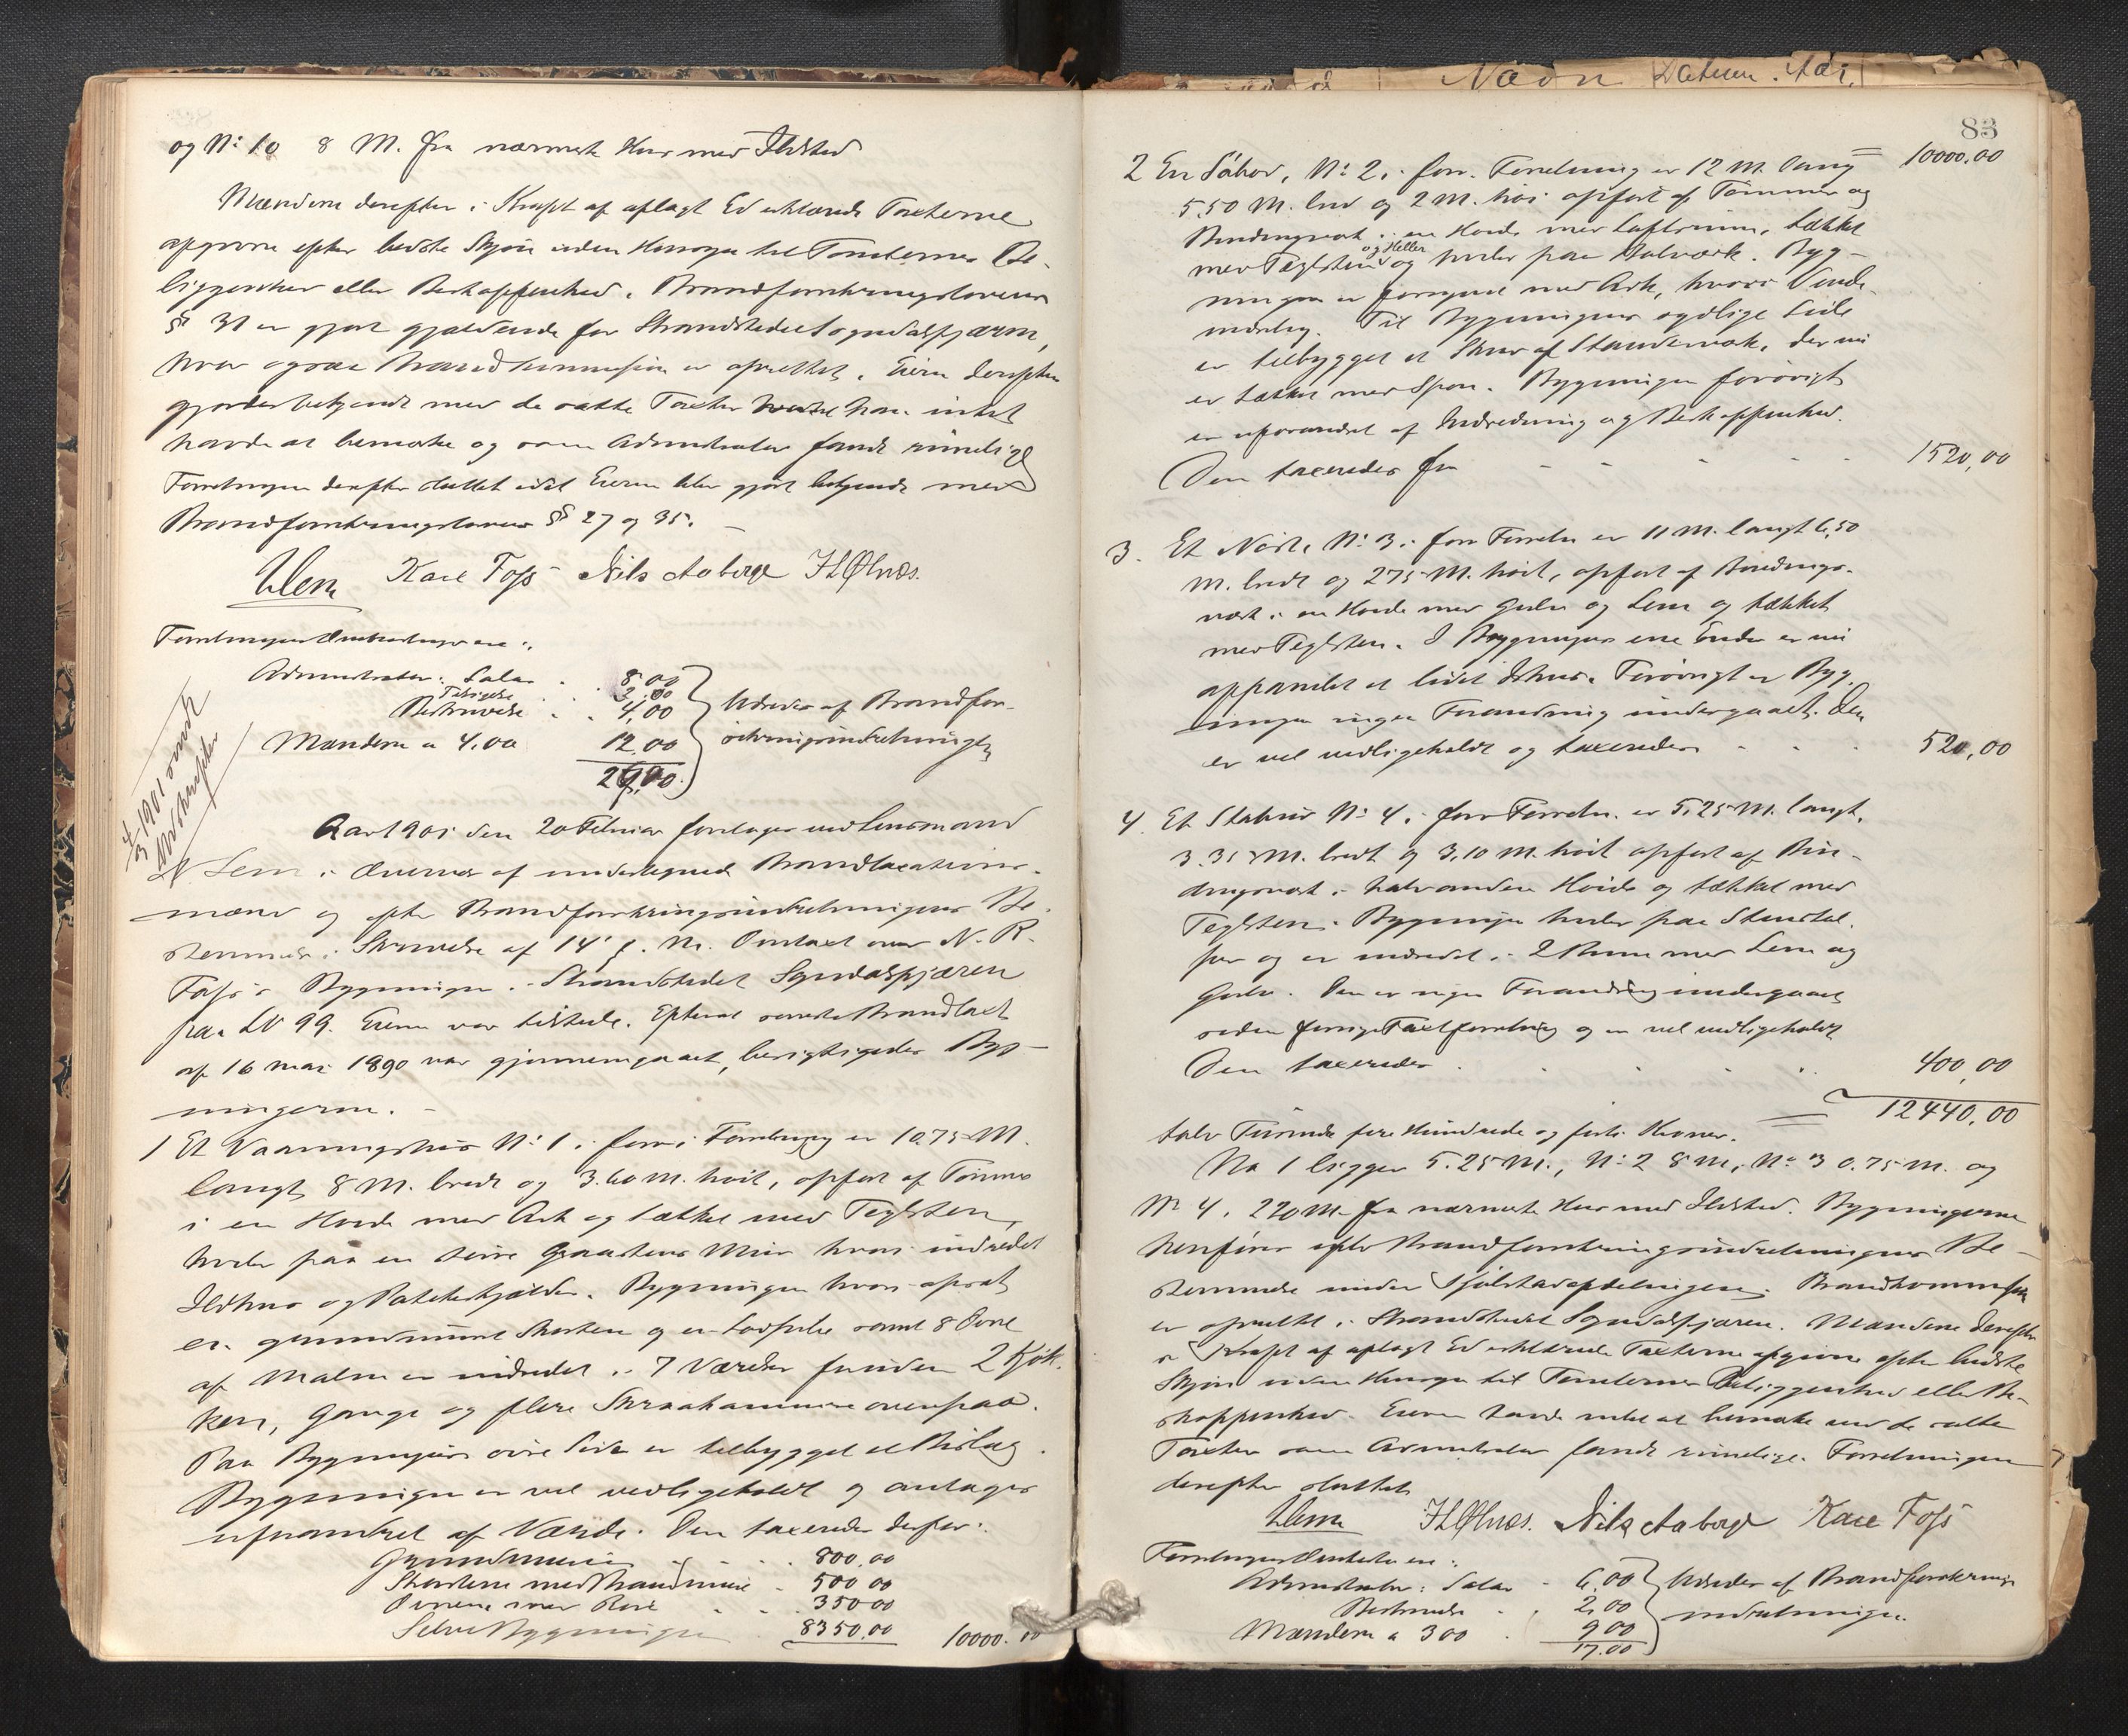 og No 10 8 M. fra nærmeste Hus med Ildsted
Mændene derefter i Kraft af aflagt Ed erklærede Taxterne
afgivne efter bedste Skjøn uden Hensyn til Tomternes Be-
liggenhed eller Beskaffenhed. Brandforsikringslovens
§ 31 er gjort gjældende for Strandstedet Sogndalsfjæren,
hvor ogsaa Brandkommission er oprettet. Eieren derefter
gjordes bekjendt med de satte Taxter han intet
havde at bemærke og som Administrator fandt rimelige
Forretningen derefter sluttet idet Eieren blev gjort bekjendt med
Brandforsikringslovens §§ 27 og 35.
Lem Kare Foss Nils Aaberge H. L. Ølnæs.
Forretningens Omkostninger ere:
Administrator: Salær 8.00
Tilsigelse 2.00
Beskrivelse 4,00
Mændene a 4.00 12.00
Udredes af Brandfor-
sikringsindretningen
4/3 1901 vendt
Aar 1901 den 20 Februar foretoges ved Lensmand
Lem i Overvær af undertegnede Brandtaxations-
mænd og efter Brandforsikringsindretningens Be-
stemmelse i Skrivelse af 14' f. M. Omtaxt over N. R.
Foss's Bygninger i Strandstedet Sogndalsfjæren
paa LN 99. Eieren var tilstede. Efterat seneste Brandtaxt
af 16 mai 1890 var gjennemgaaet, besigtigedes Byg-
ningerne.
1 Et Vaaningshus No 1 i forr. Forretning er 10.75 M.
langt, 8 M. bredt og 3.60 M. høit, opført af Tømmer
i en Høide med Ark og tækket med Teglsten,
hviler paa en større Graastens Mur hvori indredet
Ildhus og Poteteskjælder. Bygningen hvori opsat
en grundmuret Skorsten og en samt 8 Ovne
af Malm er indredet i 7 Værelser foruden 2 Kjøk-
ken, Gange og flere Skraakammere ovenpaa.
Paa Bygningens øvre Side er tilbygget et Bislag
Bygningen er vel vedligeholdt og antages
uforandret af Værdi. Den taxeredes derfor:
Grundmuren 800.00
Skorstene med Brandmure 500 00
Ovnene med Rør 350 00
Selve Bygningen 8350.00 10000.00
83
10000.00
2 En Søbod, No 2 i forr. Forretning er 12 M. lang
5.50 M. bred og 2 M. høi opført af Tømmer og
Bindingsverk i en Høide med Loftsrum, tækket
med Teglsten og Heller og hviler paa Bolværk. Byg-
ningen er forsynet med Ark, hvori Vinde-
indretng. Til Bygningens sydlige Side
er tilbygget et Skur af Standerværk, der nu
er tækket med Spon. Bygningen forøvrigt
er uforandret af Indredning og Beskaffenhed.
Den taxeredes for 1520,00
3. Et Nøst, No 3 i forr Forretn er 11 M. langt 6,50
M. bredt og 2.75 M. høit, opført af Bindings-
værk i en Høide med Gulv og Lem og tækket
med Teglsten. I Bygningens ene Ende er nu
afpanelet et lidet Ishus. Forøvrigt er Byg-
ningen ingen Forandring undergaaet. Den
er vel vedligeholdt og taxeredes 520,00
4. Et Stabur No 4 i forr Forretn. er 5.25 M. langt,
3.35 M. bredt og 3,10 M. høit opført af Bin-
dingsværk i halvanden Høide og tækket med
Teglsten. Bygningen hviler paa Stenstol-
per og er indredet i 2 Rum med Lem og
Gulv. Den er ingen Forandring undergaaet
siden forrige Taxtforretning og er vel vedligeholdt
Den taxeredes 400,00
12440,00
tolv Tusinde fire Hundrede og førti Kroner.
No 1 ligger 5.25 M., No 2 8 M, No 3 0.75 M. og
No 4. 220 M. fra nærmeste Hus med Ildsted. Bygningerne
henføres efter Brandforsikringsindretningens Be-
stemmelse under Kjøbstadafdelingen. Brandkommission
er oprettet i Strandstedet Sogndalsfjæren. Mændene derefter
i Kraft af aflagt Ed erklærede Taxterne afgivne efter bedste
Skjøn uden Hensyn til Tomternes Beliggenhed eller Be-
skaffenhed. Eieren havde intet at bemærke ved de satte
Taxter som Administrator fandt rimelige. Forretningen
derefter sluttet
Lem H. L. Ølnæs. Nils Aaberge Kare Foss
Forretningens Omkostn ere:
Administrator: Salær 6,00
Beskrivelse 2,00
Mændene a 3 00 9 00
17.00
Udredes af Brandforsikrings
indretningen.
Navn Datum. Aar.